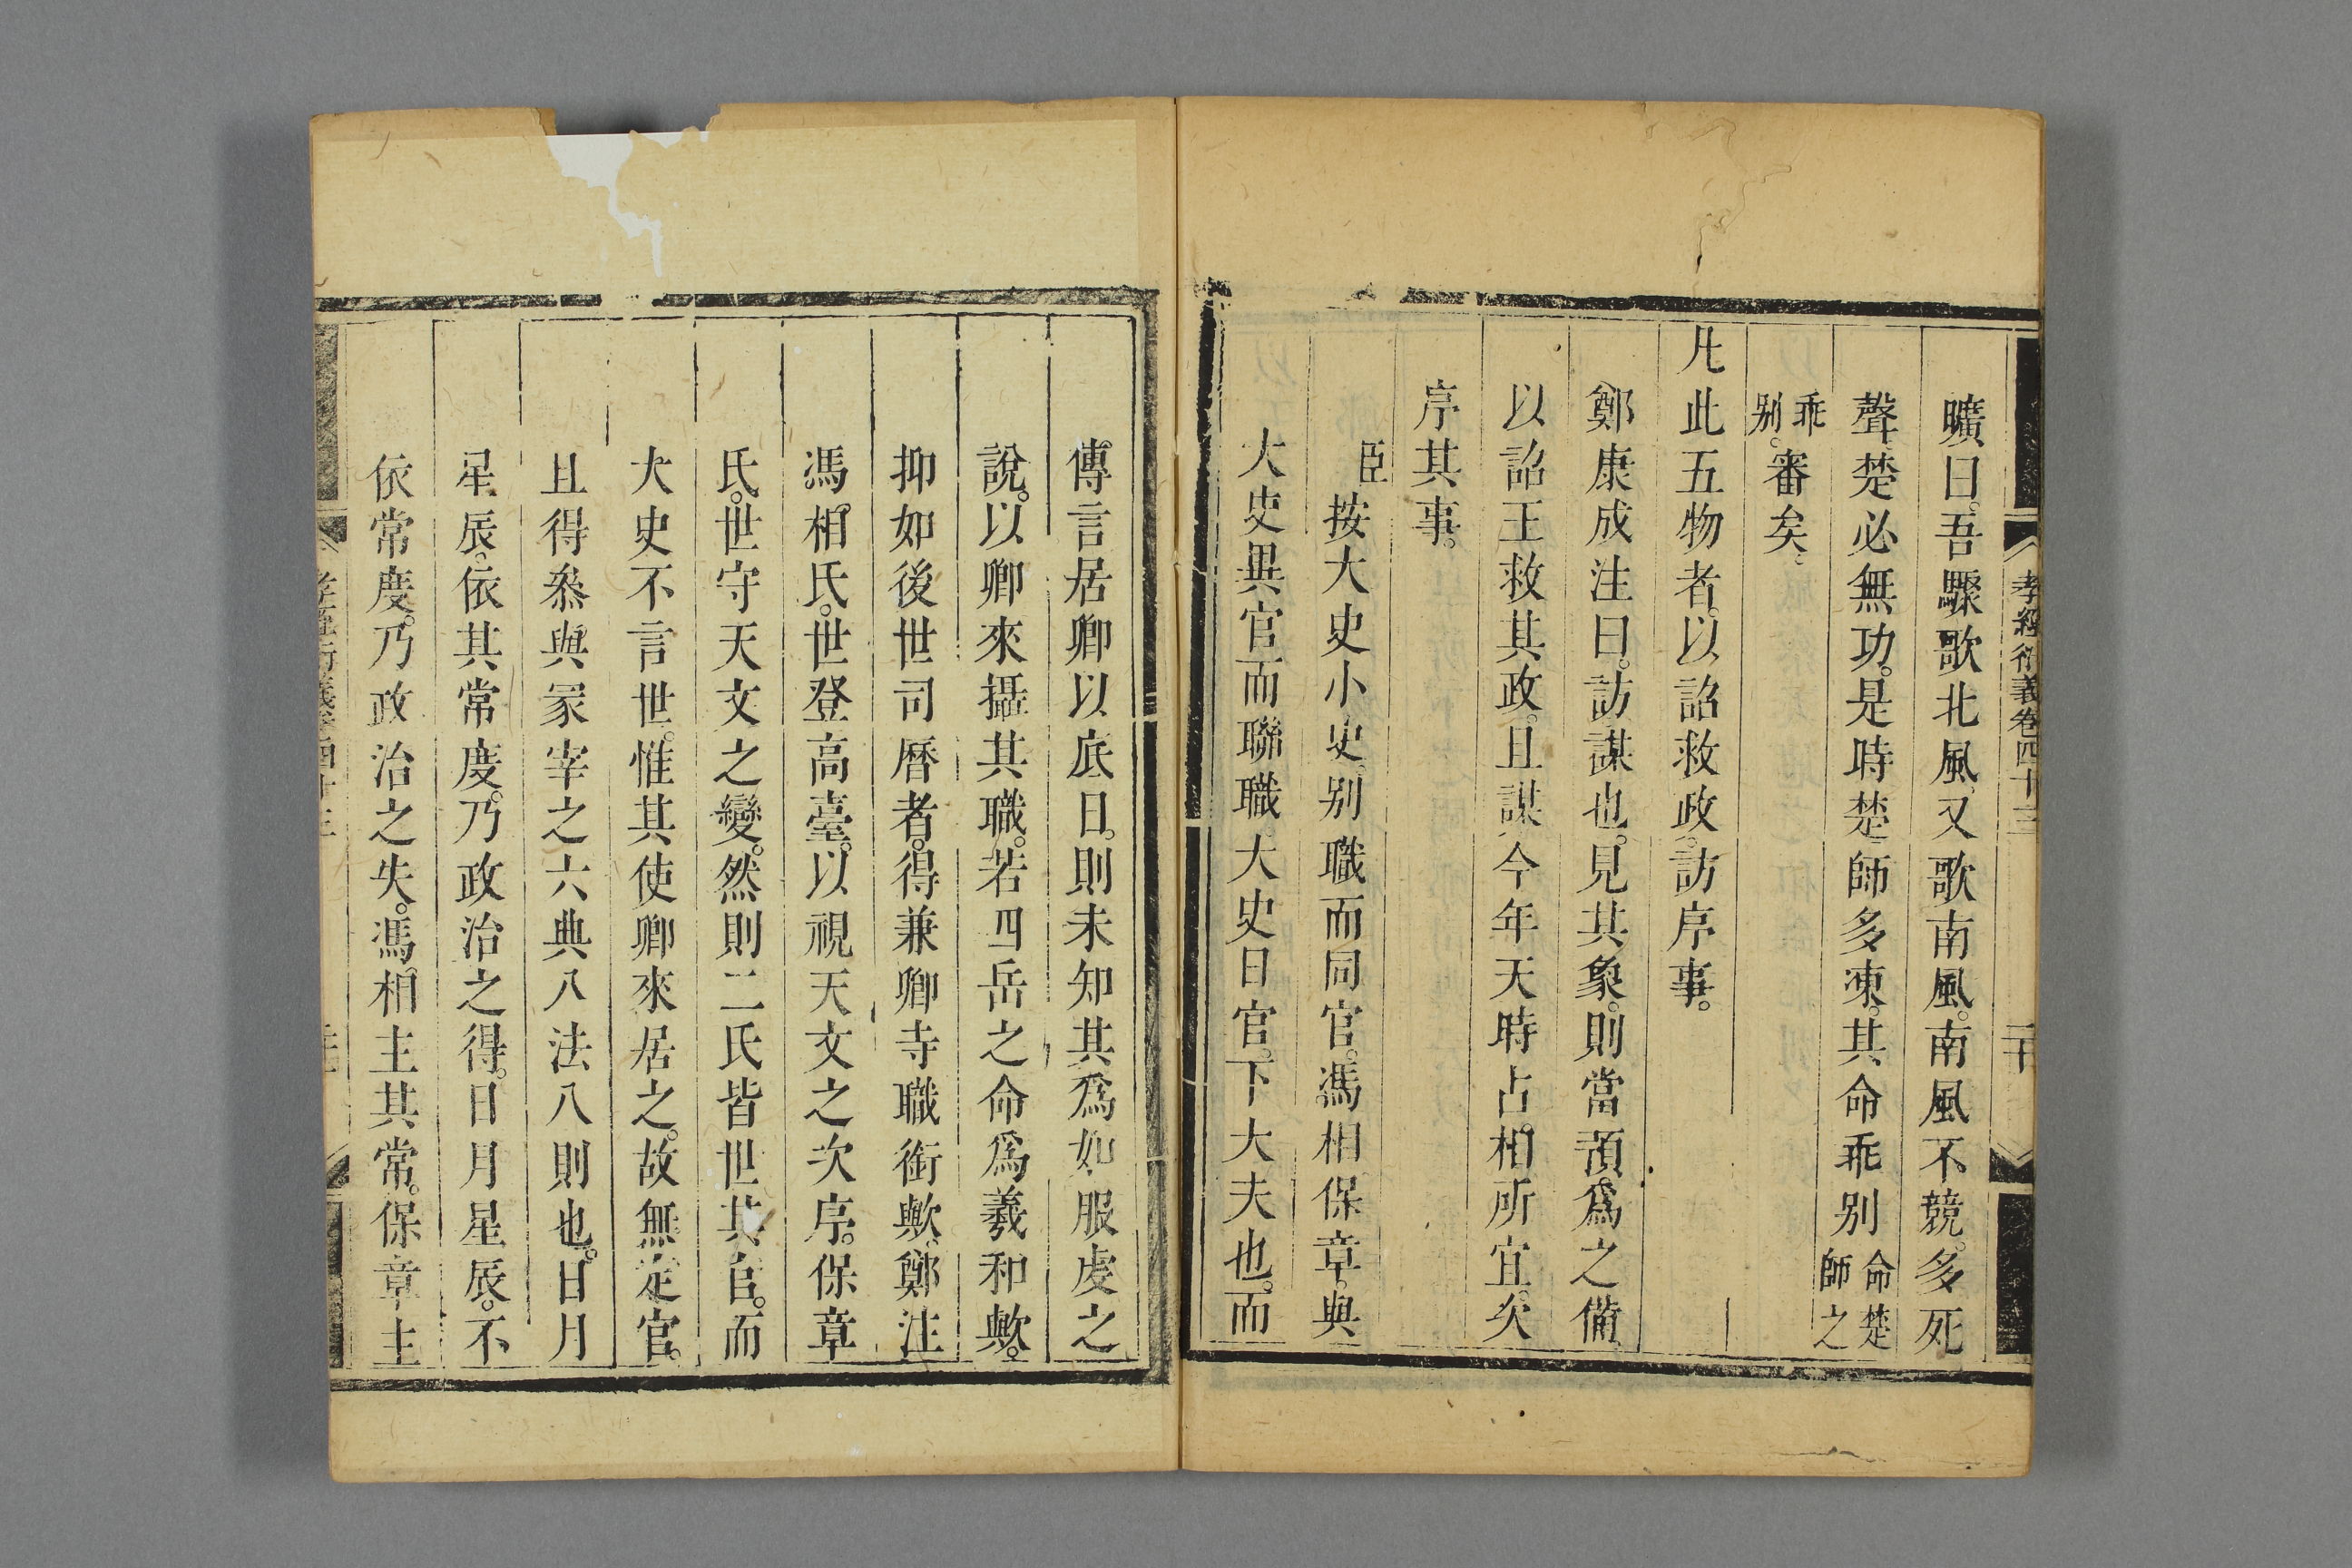 孝經衍義卷四十三
二十
曠曰。吾驟歌北風、又歌南風。南風不競。多死
聲。楚必無功。是時楚師多凍。其命乖别命楚師之
乖别。審矣、
凡此五物者。以詔救政。訪序事。
鄭康成注曰。訪謀也。見其象。則當預爲之備
以詔王救其政。且謀今年天時占。相所宜。次
序其事。
臣按大史小史。别職而同官。馮相保章。與
大史異官而聯職大史日官。下大夫也。而
傳言居卿以底日。則未知其爲如服虔之
說。以卿來攝其職。若四岳之命爲羲和歟。
抑如後世司曆者。得兼卿寺職銜歟。鄭注
馮。相氏。世登高臺。以視天文之次序。保章
氏。世守天文之變。然則二氏皆世其官。而
大史不言世。惟其使卿來居之。故無定官。
且得叅與冢宰之六典八法八則也。日月
星辰。依其常度。乃政治之得。日月星辰。不
依常度。乃政治之失。馮相主其常。保章主